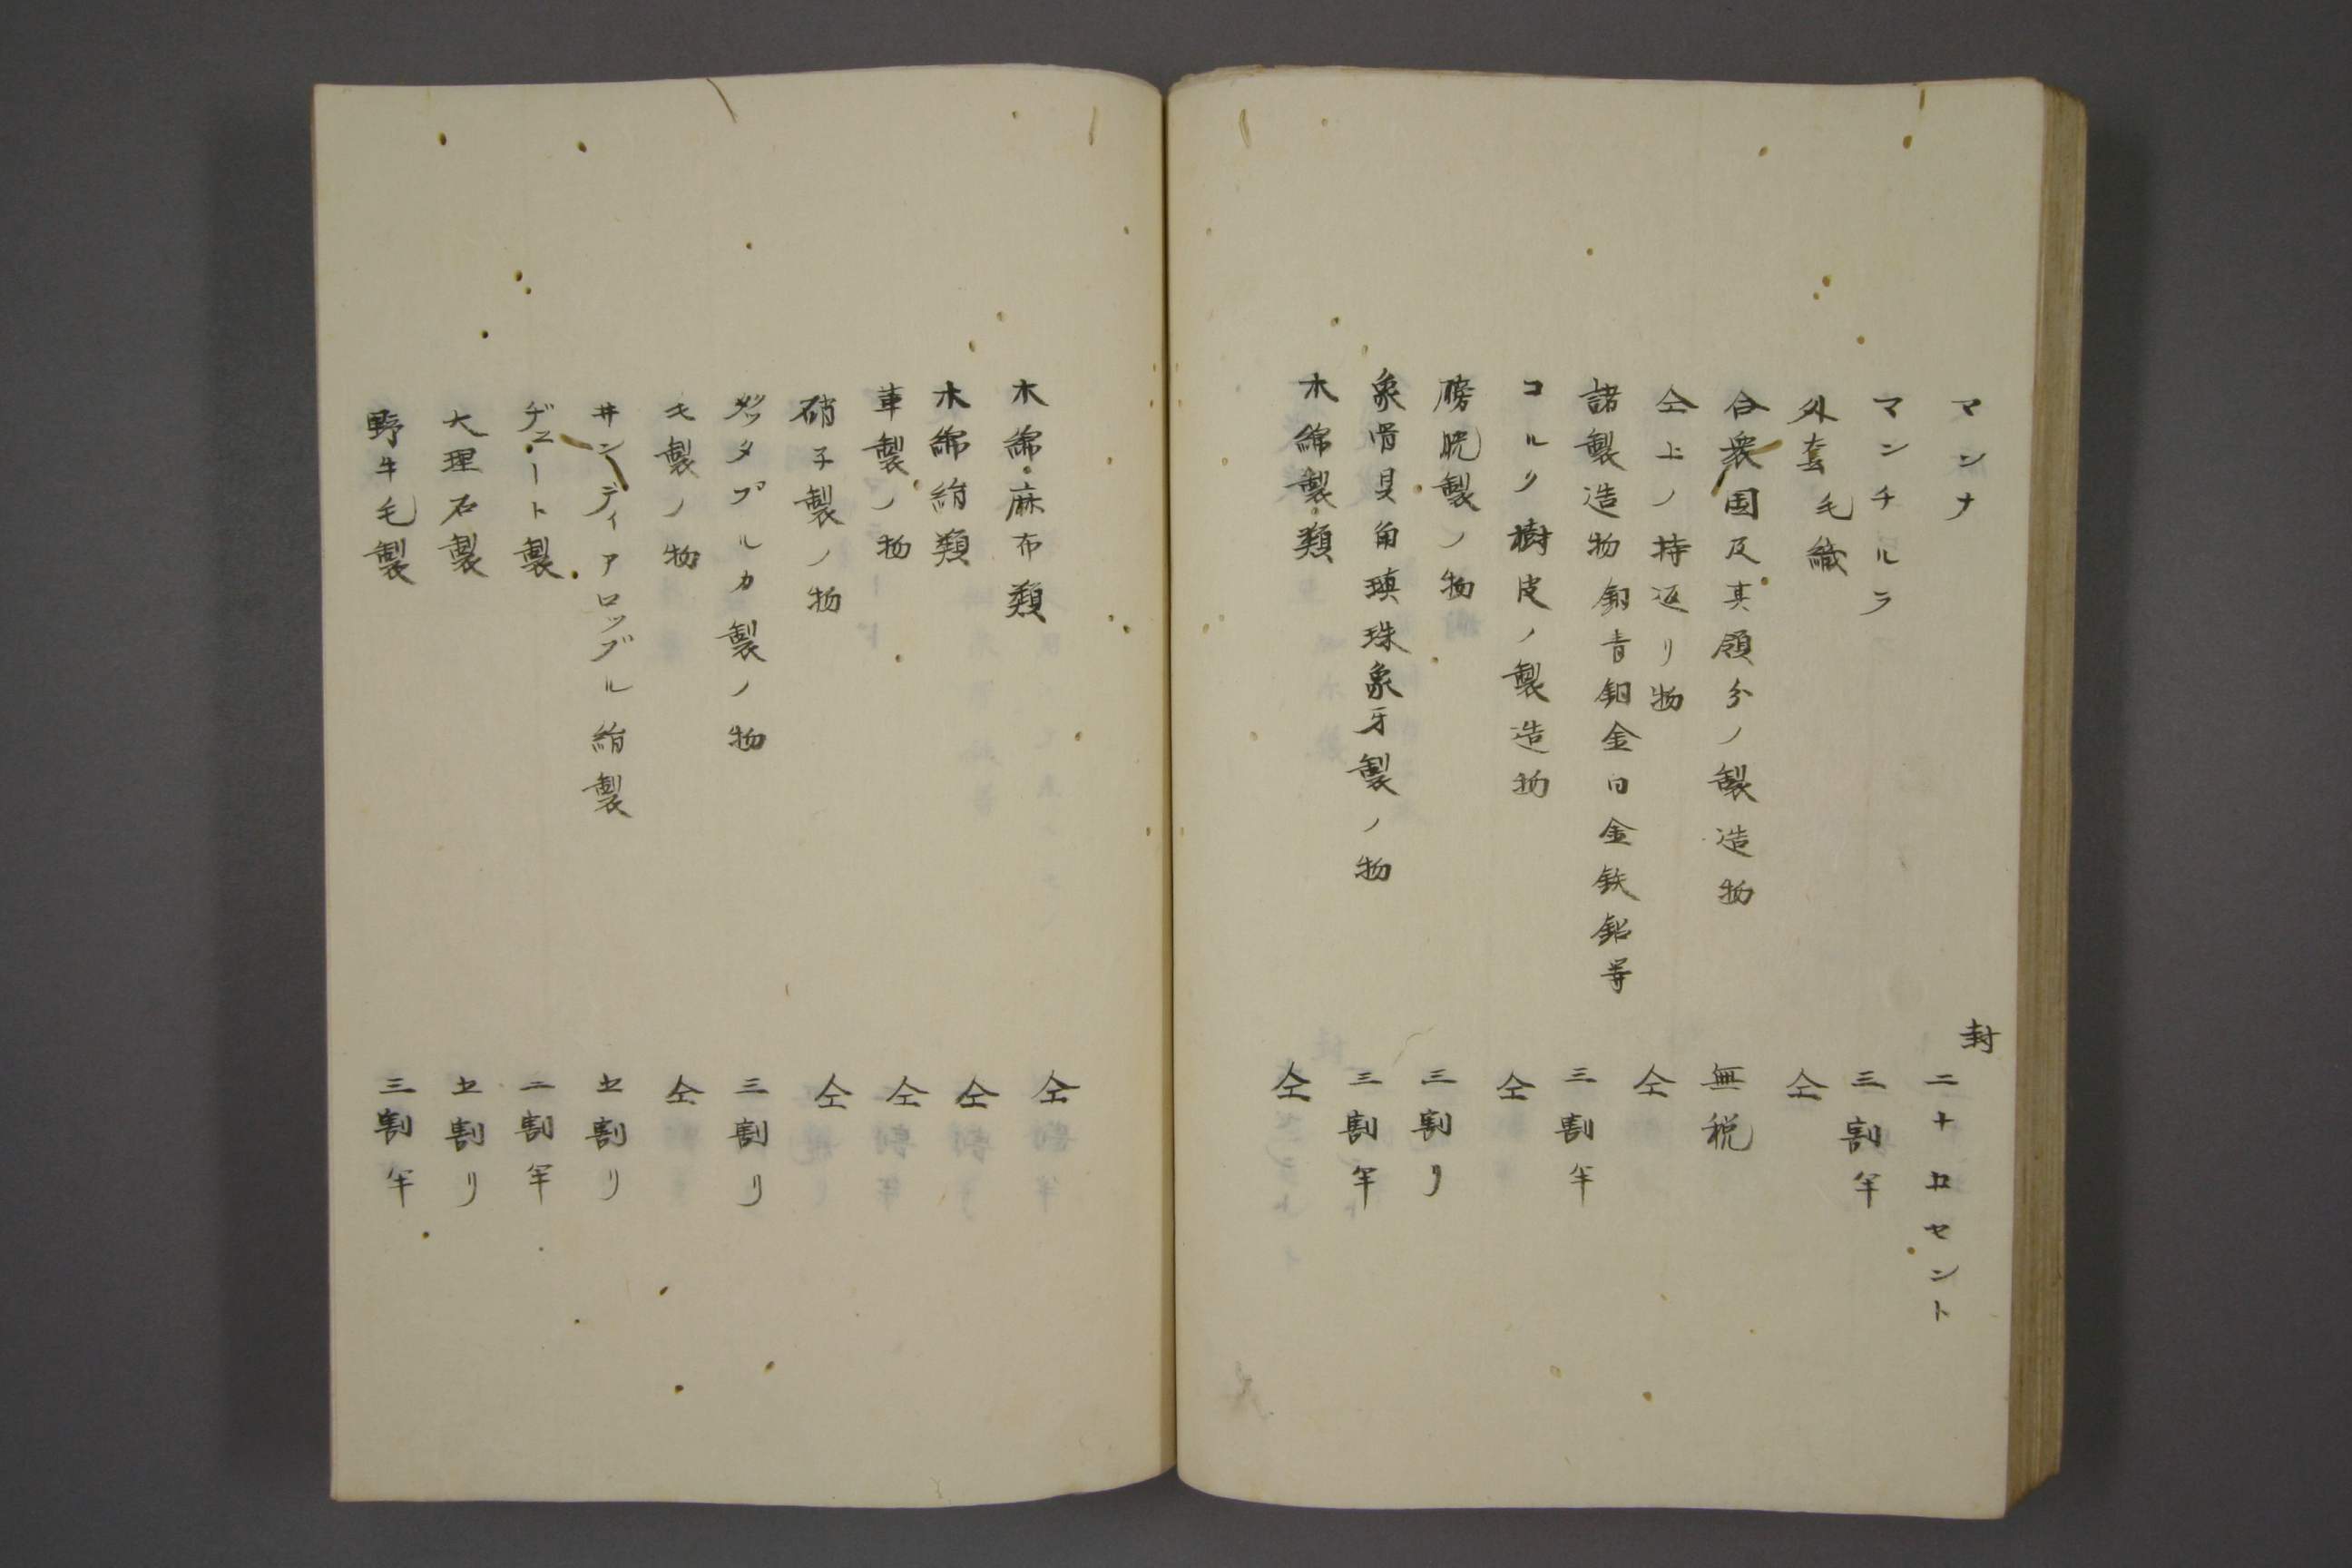 マンナ 封二十五セント
マンチルラ 三割半
外套毛織 仝
合衆国及其領分ノ製造物 無税
仝上ノ持返リ物 仝
諸製造物銅青銅金白金鉄鉛等 三割半
コルク樹皮ノ製造物 仝
膀胱製ノ物 三割リ
象骨貝角瑛珠象牙製ノ物 三割半
木綿製類 仝
木綿麻布類 仝
木綿絹類 仝
革製ノ物 仝
硝子製ノ物 仝
ガッタプルカ製ノ物 三割リ
毛製ノ物 仝
井ンディアロッブル絹製 五割リ
ヂュート製 二割半
大理石製 五割リ
野牛毛製 三割半